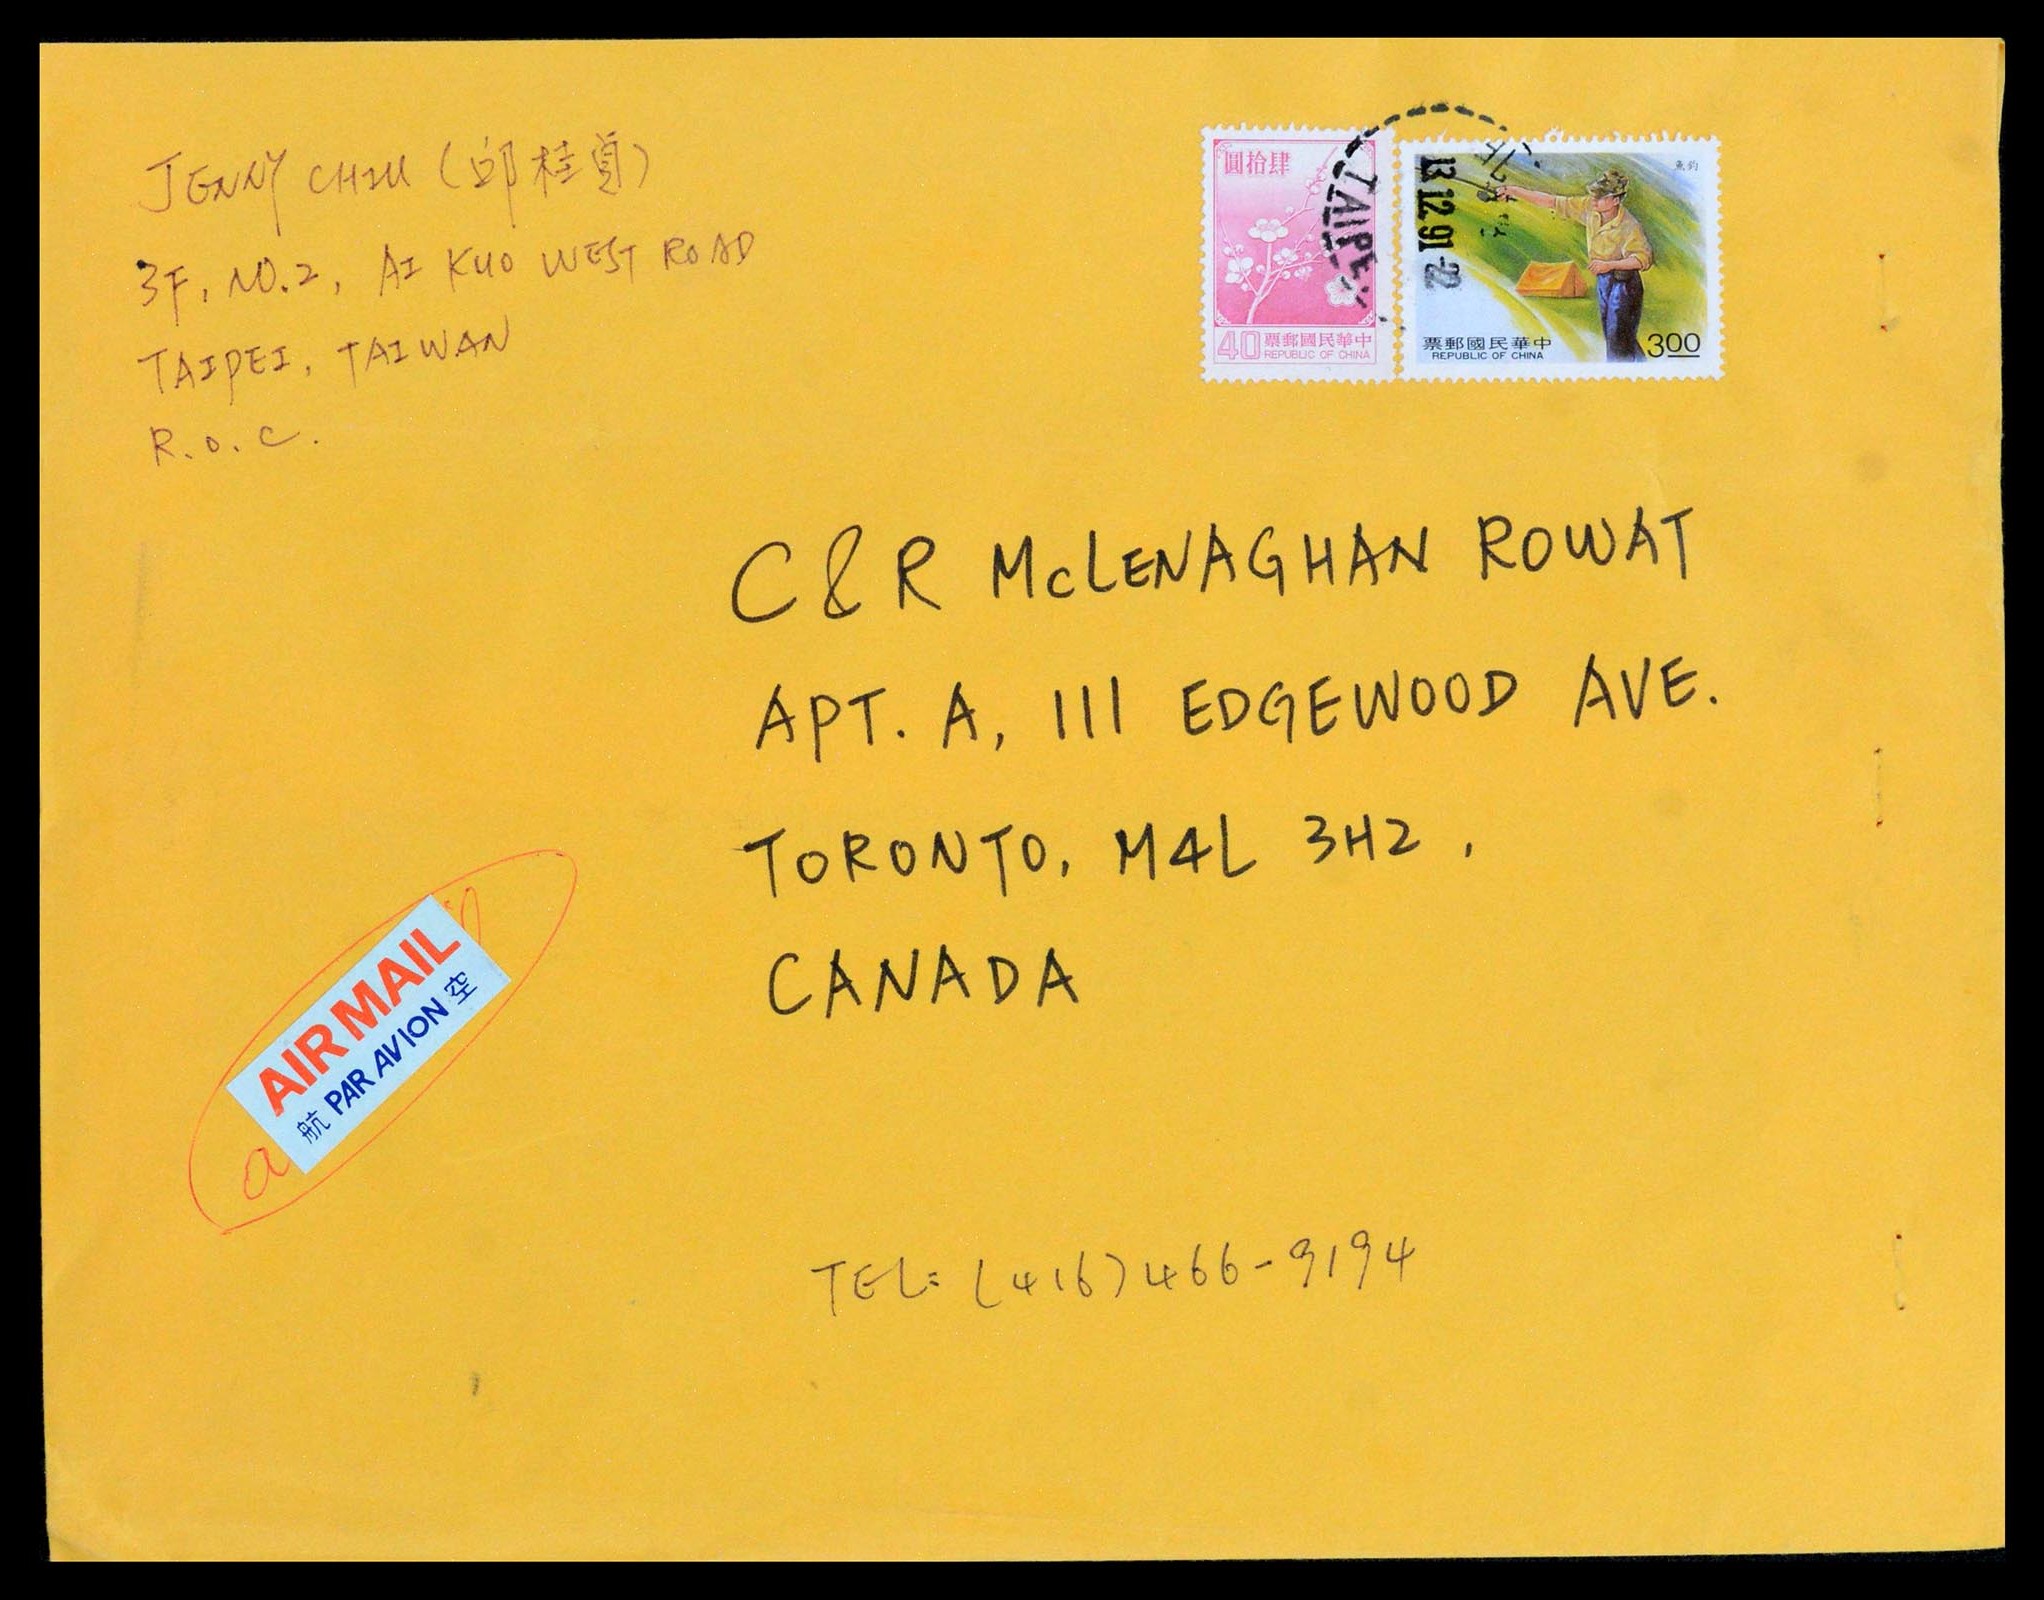 JENNY CHIU (邱桂貞)
3F, NO.2, AI KUO WEST ROAD
TAIPEI, TAIWAN
R.O.C.
圓拾肆
40 票郵國民華中
REPUBLIC OF CHINA
TAIPEI
13.12.91-22
魚釣
票郵國民華中
REPUBLIC OF CHINA
3.00
C & R McLENAGHAN ROWAT
APT. A, 111 EDGEWOOD AVE.
TORONTO, M4L 3H2,
CANADA
AIR MAIL
航 PAR AVION 空
TEL: (416) 466-9194